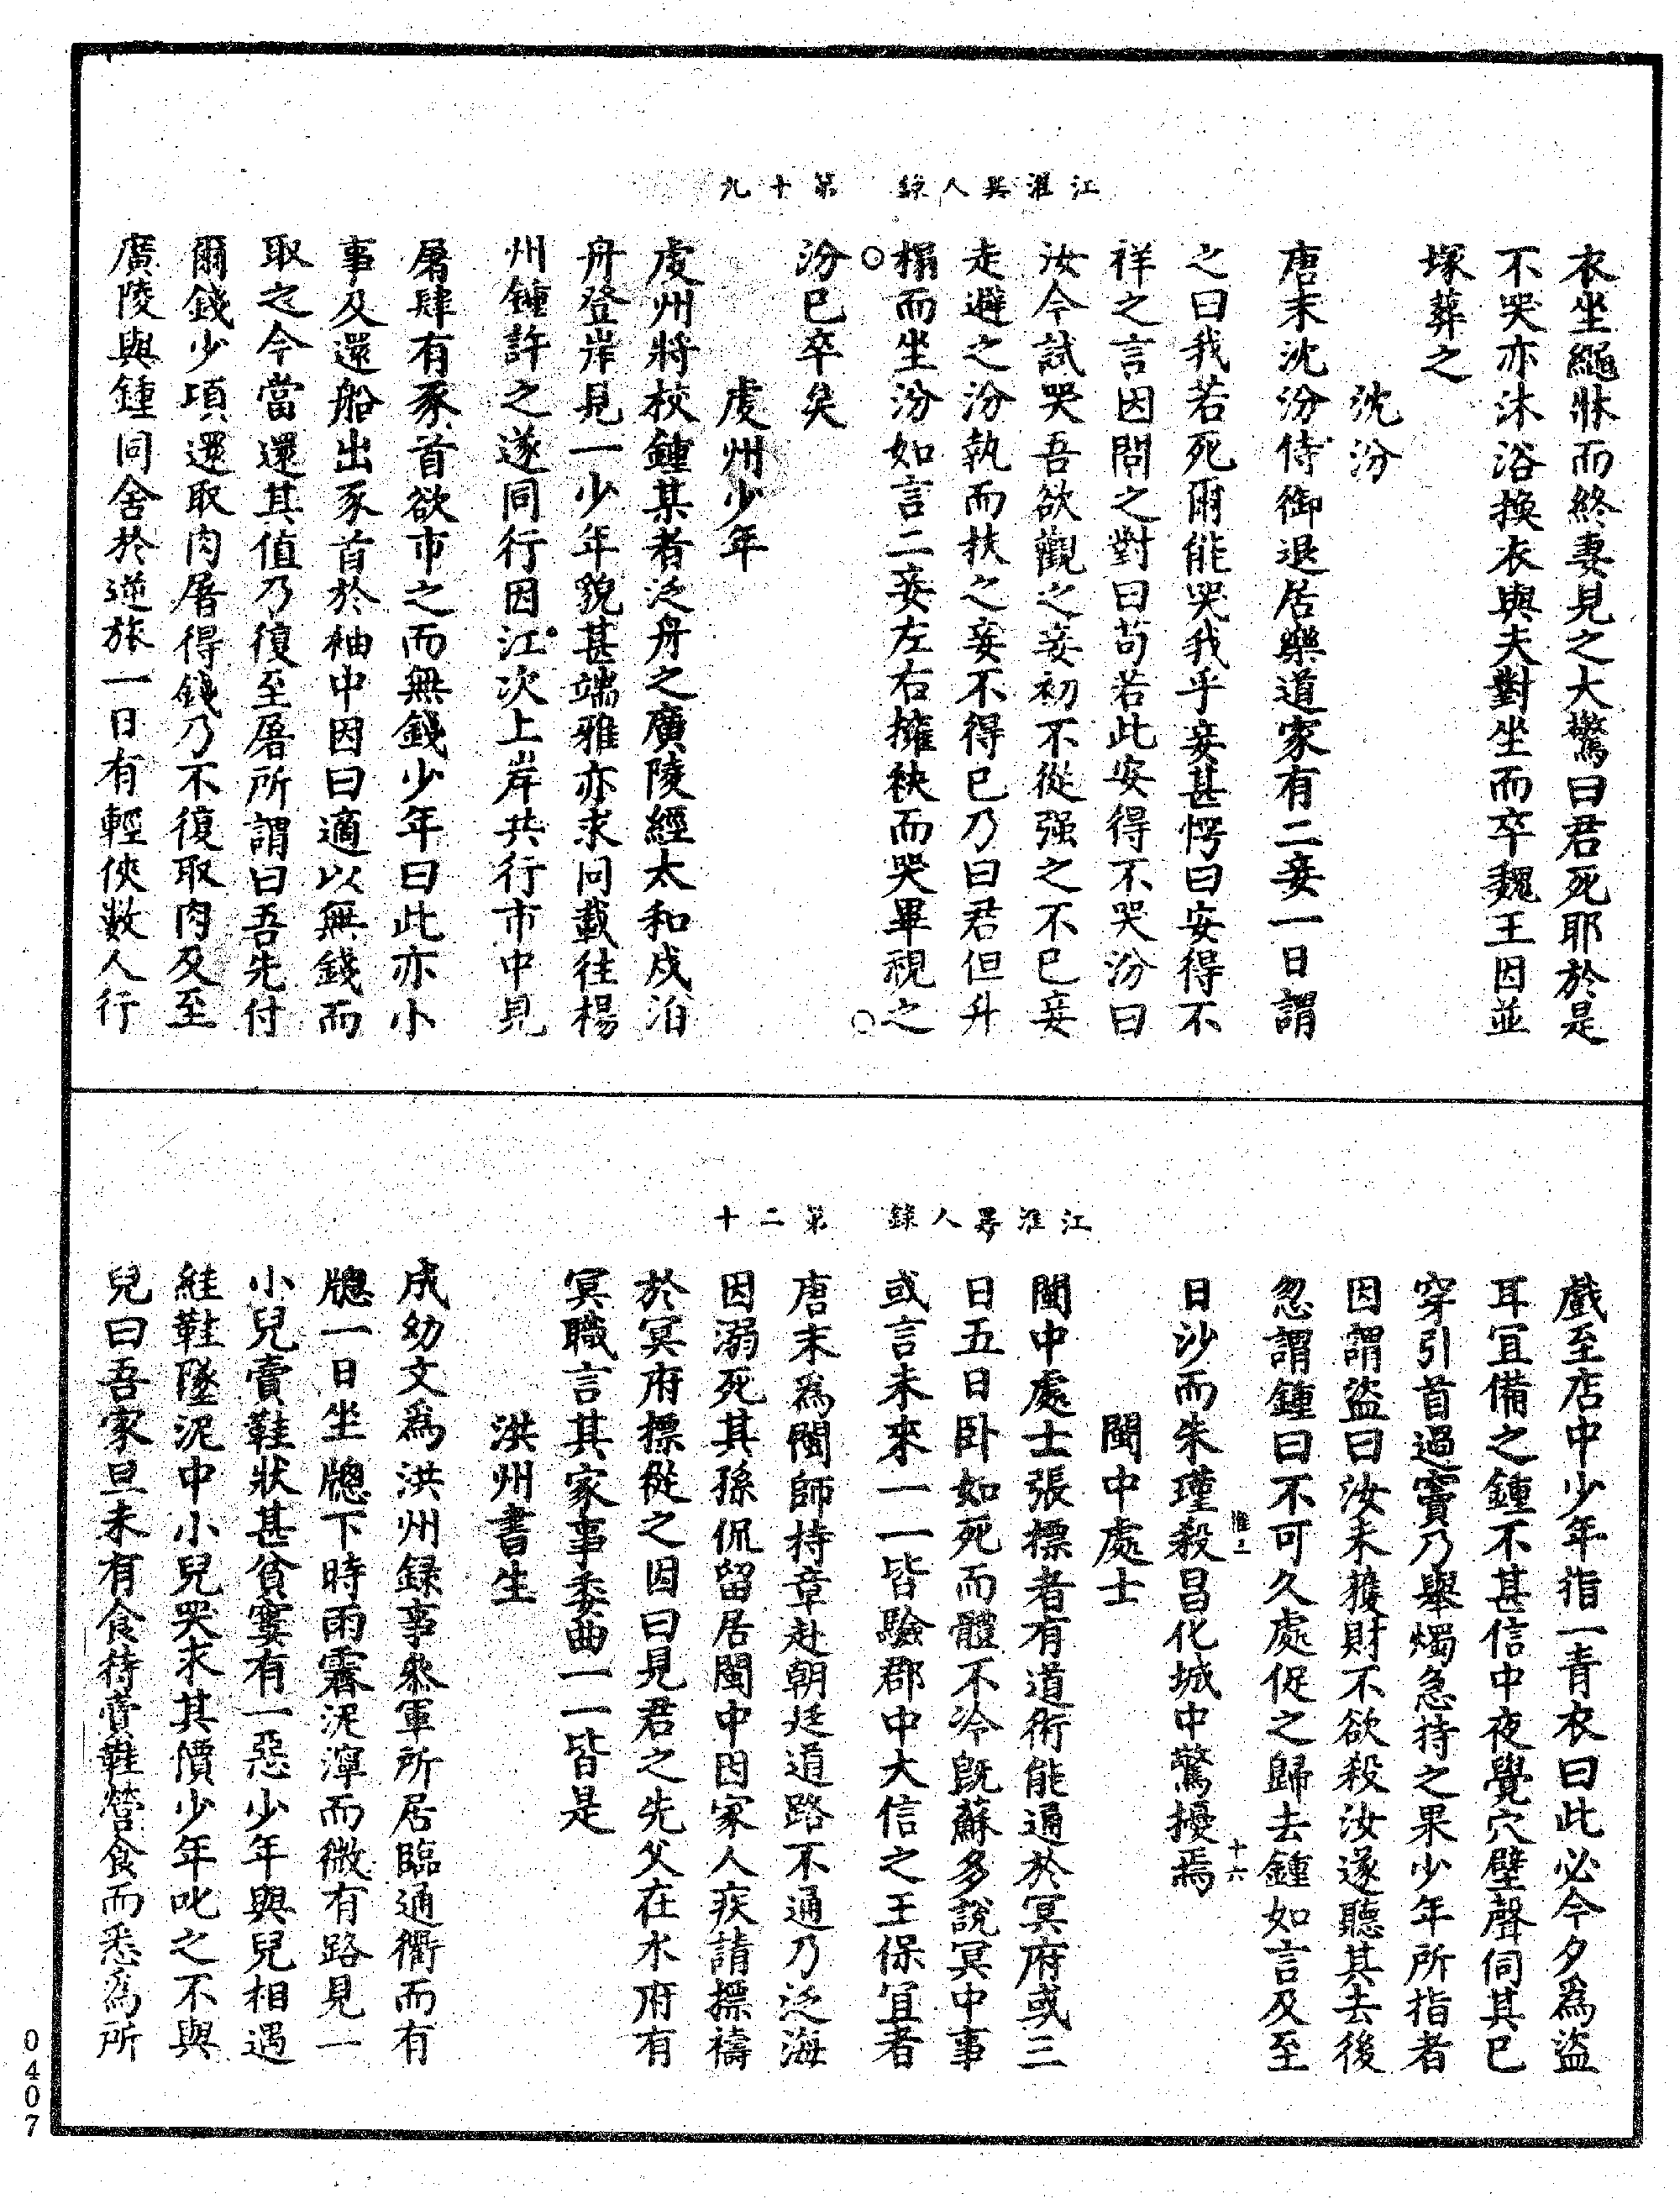 江淮異人録　第十九
衣坐繩牀而終妻見之大驚曰君死耶於是
不哭亦沐浴換衣與夫對坐而卒魏王因並
塚葬之
沈汾
唐末沈汾侍御退居樂道家有二妾一日謂
之曰我若死爾能哭我乎妾甚愕曰安得不
祥之言因問之對曰苟若此安得不哭汾曰
汝今試哭吾欲觀之妾初不從强之不已妾
走避之汾執而扶之妾不得已乃曰君但升
榻而坐汾如言二妾左右擁袂而哭畢視之
汾已卒矣
虔州少年
虔州將校鍾某者泛舟之廣陵經太和戍泊
舟登岸見一少年貌甚端雅亦求同載往楊
州鍾許之遂同行因江次上岸共行市中見
屠肆有豕首欲市之而無錢少年曰此亦小
事及還船出豕首於袖中因曰適以無錢而
取之今當還其值乃復至屠所謂曰吾先付
爾錢少項還取肉屠得錢乃不復取肉及至
廣陵與鍾同舍於逆旅一日有輕俠數人行
江淮異人録　第二十
戲至店中少年指一青衣曰此必今夕爲盜
耳宜備之鍾不甚信中夜覺穴壁聲伺其已
穿引首過竇乃舉燭急持之果少年所指者
因謂盜曰汝未獲財不欲殺汝遂聽其去後
忽謂鍾曰不可久處促之歸去鍾如言及至
淮上　十六
日沙而朱瑾殺昌化城中驚擾焉
閩中處士
閩中處士張標者有道術能通於冥府或三
日五日卧如死而體不冷旣蘇多說冥中事
或言未來一一皆驗郡中大信之王保宜者
唐末爲閩師持章赴朝廷道路不通乃泛海
因溺死其孫侃留居閩中因家人疾請標禱
於冥府標從之因曰見君之先父在水府有
冥職言其家事委曲一一皆是
洪州書生
成幼文爲洪州録事叅軍所居臨通衢而有
牕一日坐牕下時雨霽泥濘而微有路見一
小兒賣鞋狀甚貧窶有一惡少年與兒相遇
絓鞋墜泥中小兒哭求其價少年叱之不與
兒曰吾家旦未有食待賣鞋營食而悉爲所
0407